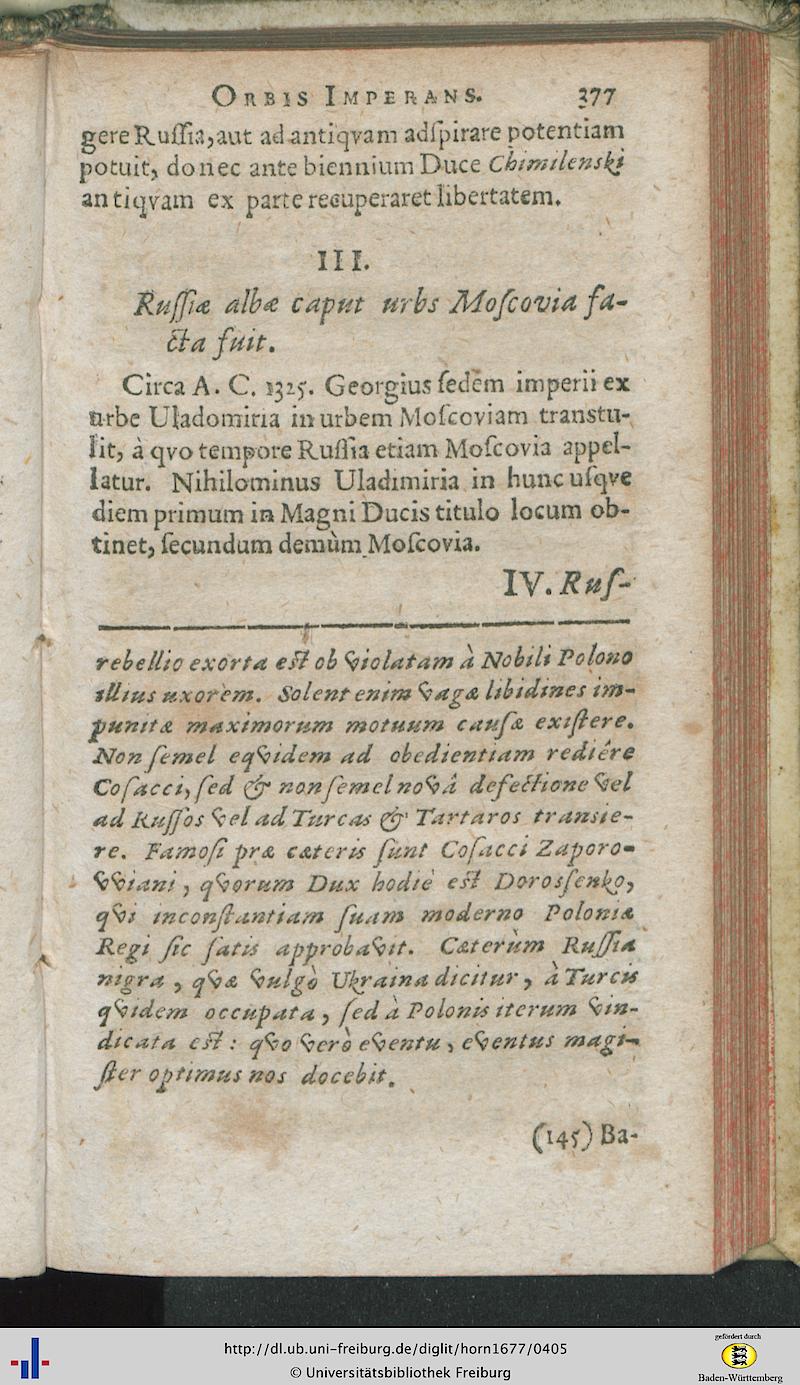 ORBIS IMPERANS. 377
gere Ruſſia, aut ad antiqvam adſpirare potentiam
potuit, donec ante biennium Duce Chimilenski
antiqvam ex parte recuperaret libertatem.
III.
Ruſſiæ albæ caput urbs Moſcovia fa-
cta fuit.
Circa A. C. 1325. Georgius ſedem imperii ex
urbe Uladomiria in urbem Moſcoviam transtu-
lit, à qvo tempore Ruſſia etiam Moſcovia appel-
latur. Nihilominus Uladimiria in hunc uſqve
diem primum in Magni Ducis titulo locum ob-
tinet, ſecundum demùm Moſcovia.
IV. Ruſ-
rebellio exorta est ob violatam à Nobili Polono
illius uxorem. Solent enim vagæ libidines im-
punitæ maximorum motuum cauſæ exiſtere.
Non ſemel eqvidem ad obedientiam rediêre
Coſacci, ſed & non ſemel novâ defectione vel
ad Ruſſos vel ad Turcas & Tartaros transie-
re. Famoſi præ cæteris ſunt Coſacci Zaporo-
vviani, qvorum Dux hodiè est Dorosſenko,
qvi inconſtantiam ſuam moderno Poloniæ
Regi ſic ſatis approbavit. Cæterùm Ruſſia
nigra, qvæ vulgò Ukraina dicitur, à Turcis
qvidem occupata, ſed à Polonis iterum vin-
dicata est: qvo verò eventu, eventus magi-
ſter optimus nos docebit.
(145) Ba-
http://dl.ub.uni-freiburg.de/diglit/horn1677/0405
© Universitätsbibliothek Freiburg
gefördert durch
Baden-Württemberg